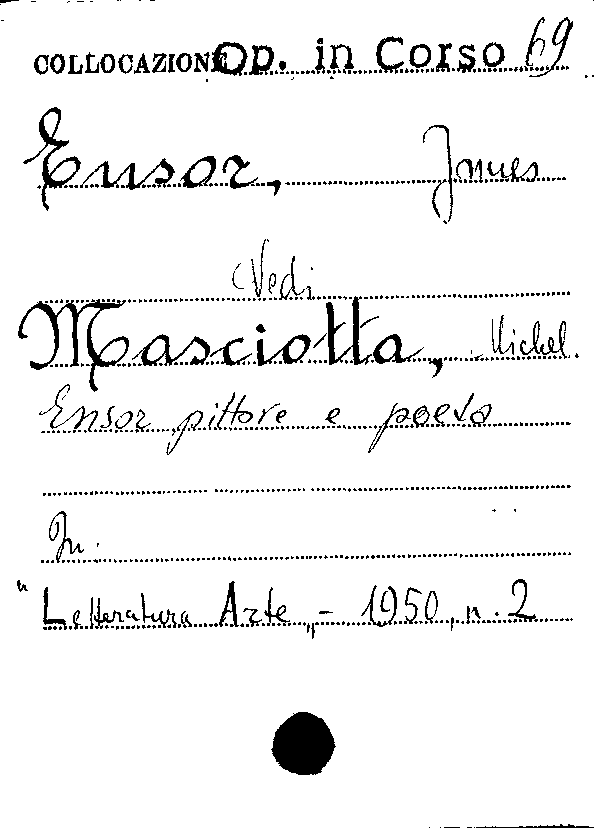 COLLOCAZIONE Op. in Corso 69
Ensor, James
Vedi
Masciotta, Michel.
Ensor pittore e poeta
In.
"Letteratura Arte„ - 1950, n. 2